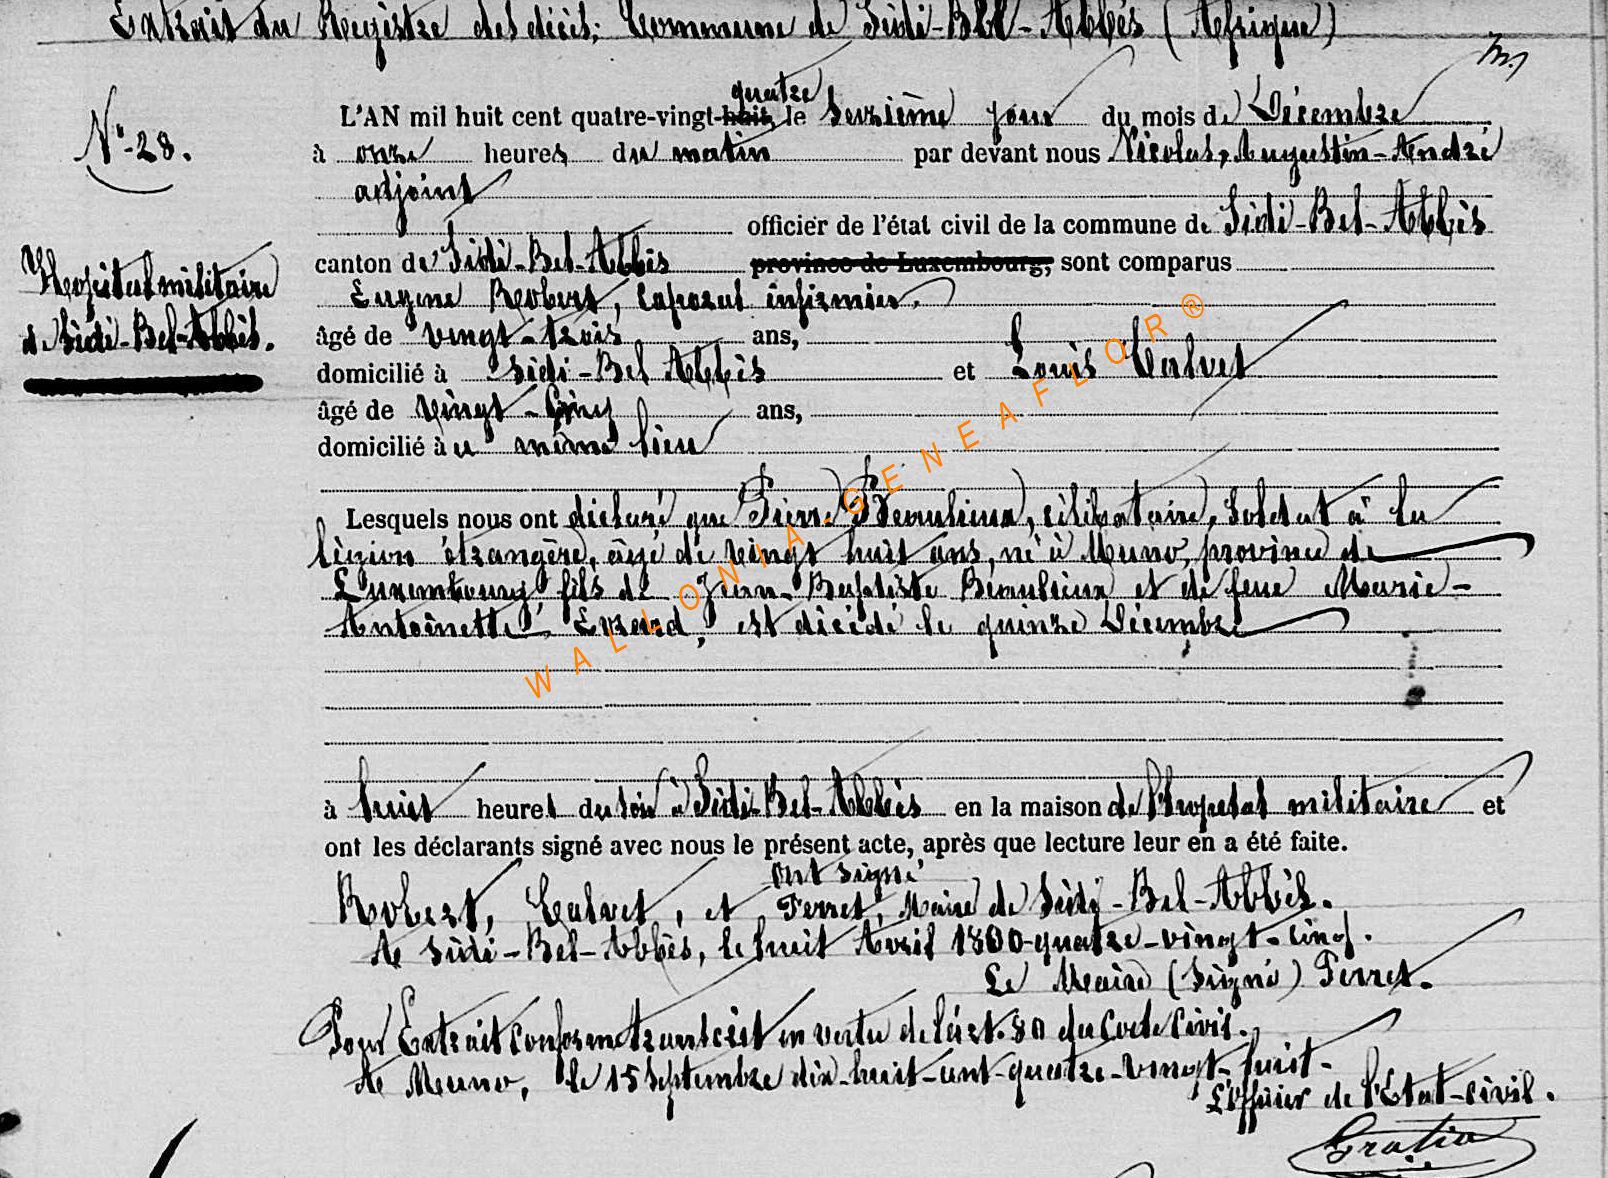 Extrait du Registre des décès; Commune de Sidi-Bel-Abbès (Afrique)
N° 28.
quatre
L'AN mil huit cent quatre-vingt-huit, le seizième jour du mois de Décembre
à onze heures du matin par devant nous Nicolas, Augustin-André
adjoint
officier de l'état civil de la commune de Sidi-Bel-Abbès
Hopital militaire
de Sidi-Bel-Abbès.
canton de Sidi-Bel-Abbès province de Luxembourg, sont comparus
Eugene Robert, caporal infirmier.
âgé de vingt-trois ans,
domicilié à Sidi-Bel Abbès et Louis Calvet
âgé de vingt-cinq ans,
domicilié à u même lieu
Lesquels nous ont déclaré que Pierre Beaulieux, célibataire, soldat à la
légion étrangère, âgé de vingt huit ans, né à Muno, province de
Luxembourg, fils de Jean-Baptiste Beaulieux et de feue Marie-
Antoinette Evrard, est décédé le quinze Décembre
WALLONIA-GENEAFLOR®
à huit heures du soir à Sidi-Bel-Abbès en la maison de l'hopital militaire et
ont les déclarants signé avec nous le présent acte, après que lecture leur en a été faite.
ont signé
Robert, Calvet, et Perret, Maire de Sidi-Bel-Abbès.
A Sidi-Bel-Abbès, le huit Avril 1800-quatre-vingt-cinq.
Le Maire (Signé) Perret.
Pour Extrait conforme transcrit en vertu de l'art. 80 du Code Civil.
A Muno, le 15 Septembre dix-huit-cent-quatre-vingt-huit-
L'Officier de l'Etat-civil.